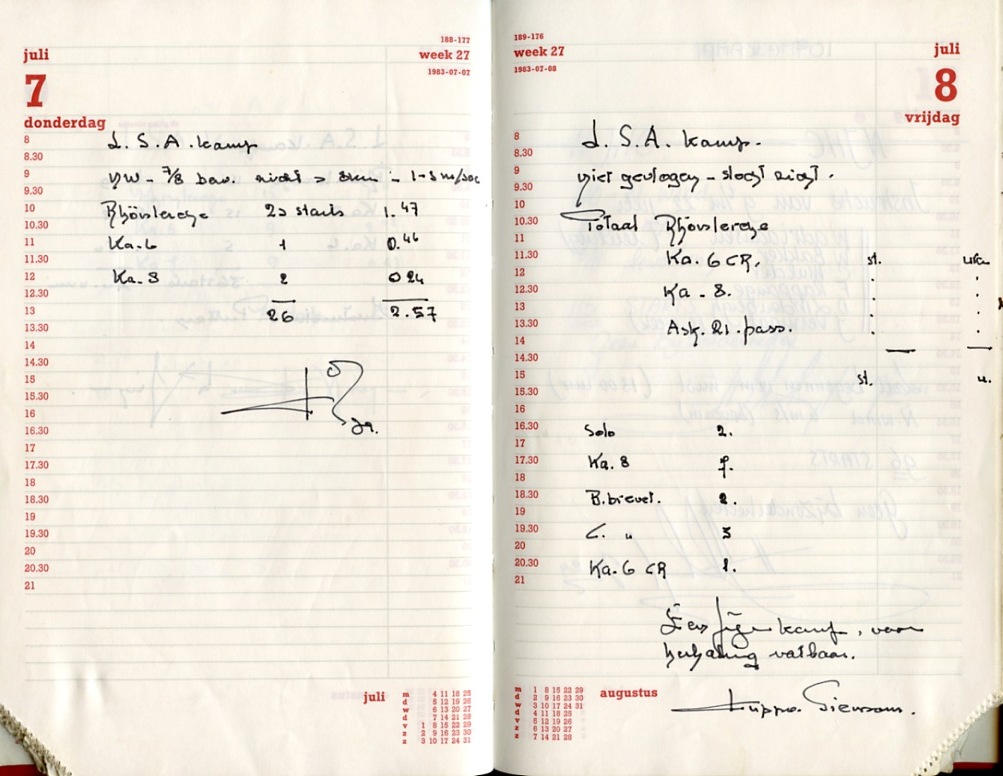 188-177
juli week 27
1983-07-07
7
donderdag
8 L. S. A. kamp
8.30
9 NW - 7/8 bew. zicht > 8km -
9.30
10 Rhönlerche 23 starts 1.47
10.30
11 Ka.6 1 0.46
11.30
12 Ka.8 2 0 24
12.30
13 26 2.57
13.30
14
14.30
15
15.30
16
16.30
17
17.30
18
18.30
19
19.30
20
20.30
21
juli
m 4 11 18 25
d 5 12 19 26
w 6 13 20 27
d 7 14 21 28
v 1 8 15 22 29
z 2 9 16 23 30
z 3 10 17 24 31
189-176
week 27 juli
1983-07-08
8
vrijdag
8 L. S. A. kamp.
8.30
9 niet gevlogen - slecht zicht.
9.30
10
10.30 Totaal Rhönlerche
11
11.30 Ka. 6 CR. st. uren
12
12.30 Ka - 8.
13
13.30 Ask. 21. pass.
14
14.30
15 st. u.
15.30
16
16.30 Solo 2.
17
17.30 Ka. 8 7.
18
18.30 B.brevet. 2.
19
19.30 C. " 3
20
20.30 Ka. 6 CR 1.
21
Een fijn kamp, voor
herhaling vatbaar.
augustus
m 1 8 15 22 29
d 2 9 16 23 30
w 3 10 17 24 31
d 4 11 18 25
v 5 12 19 26
z 6 13 20 27
z 7 14 21 28